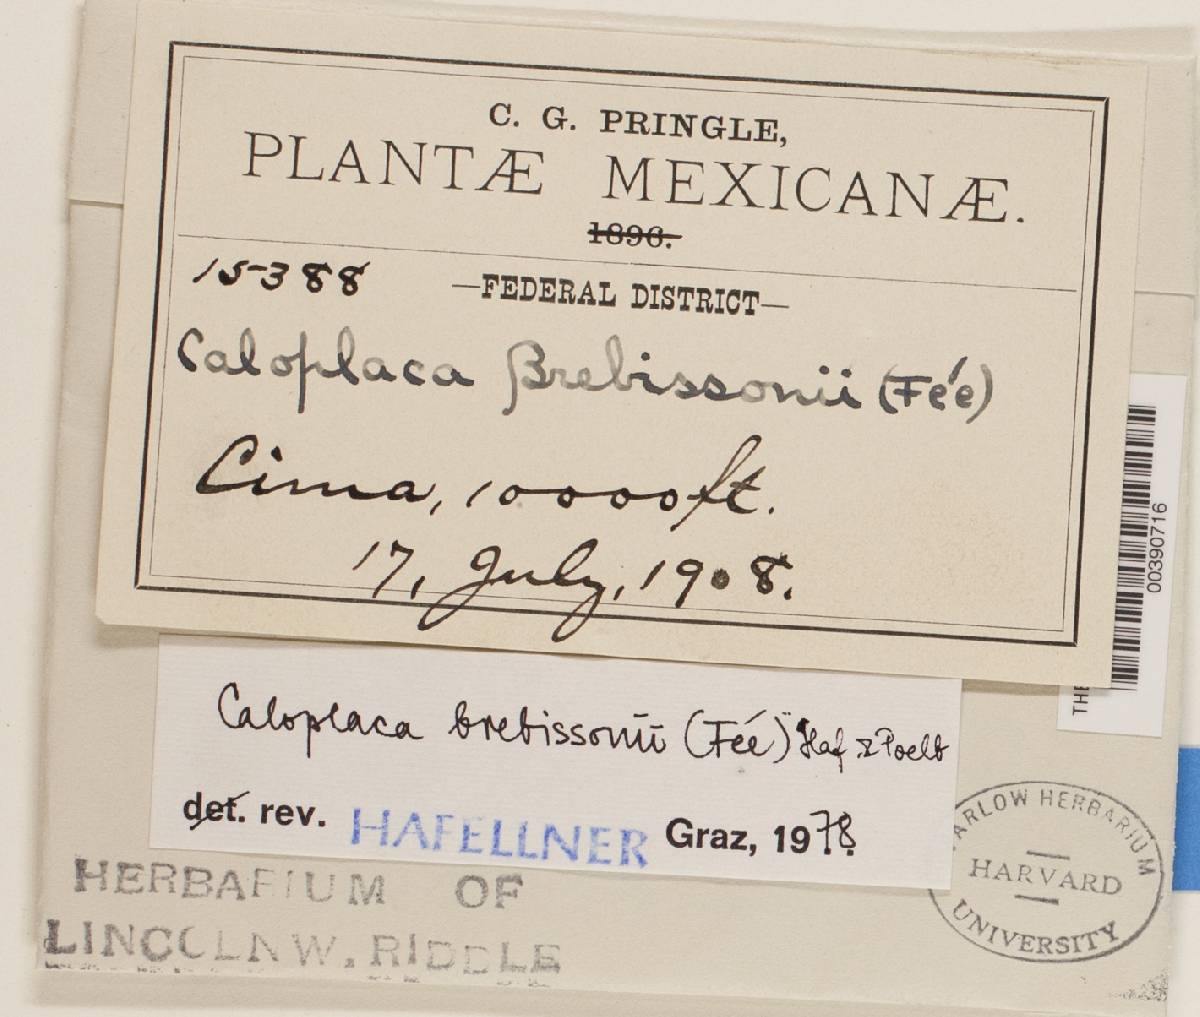 C. G. PRINGLE,
PLANTÆ MEXICANÆ.
1896.
15388 —FEDERAL DISTRICT—
Caloplaca Brebissonii (Fée)
Cima, 10000 ft.
17, July, 1908.
00390716
THE
Caloplaca brebissonii (Fée) Haf & Poelt
det. rev. HAFELLNER Graz, 1978.
HERBARIUM OF
LINCOLN W. RIDDLE
ARLOW HERBARIUM
HARVARD
UNIVERSITY